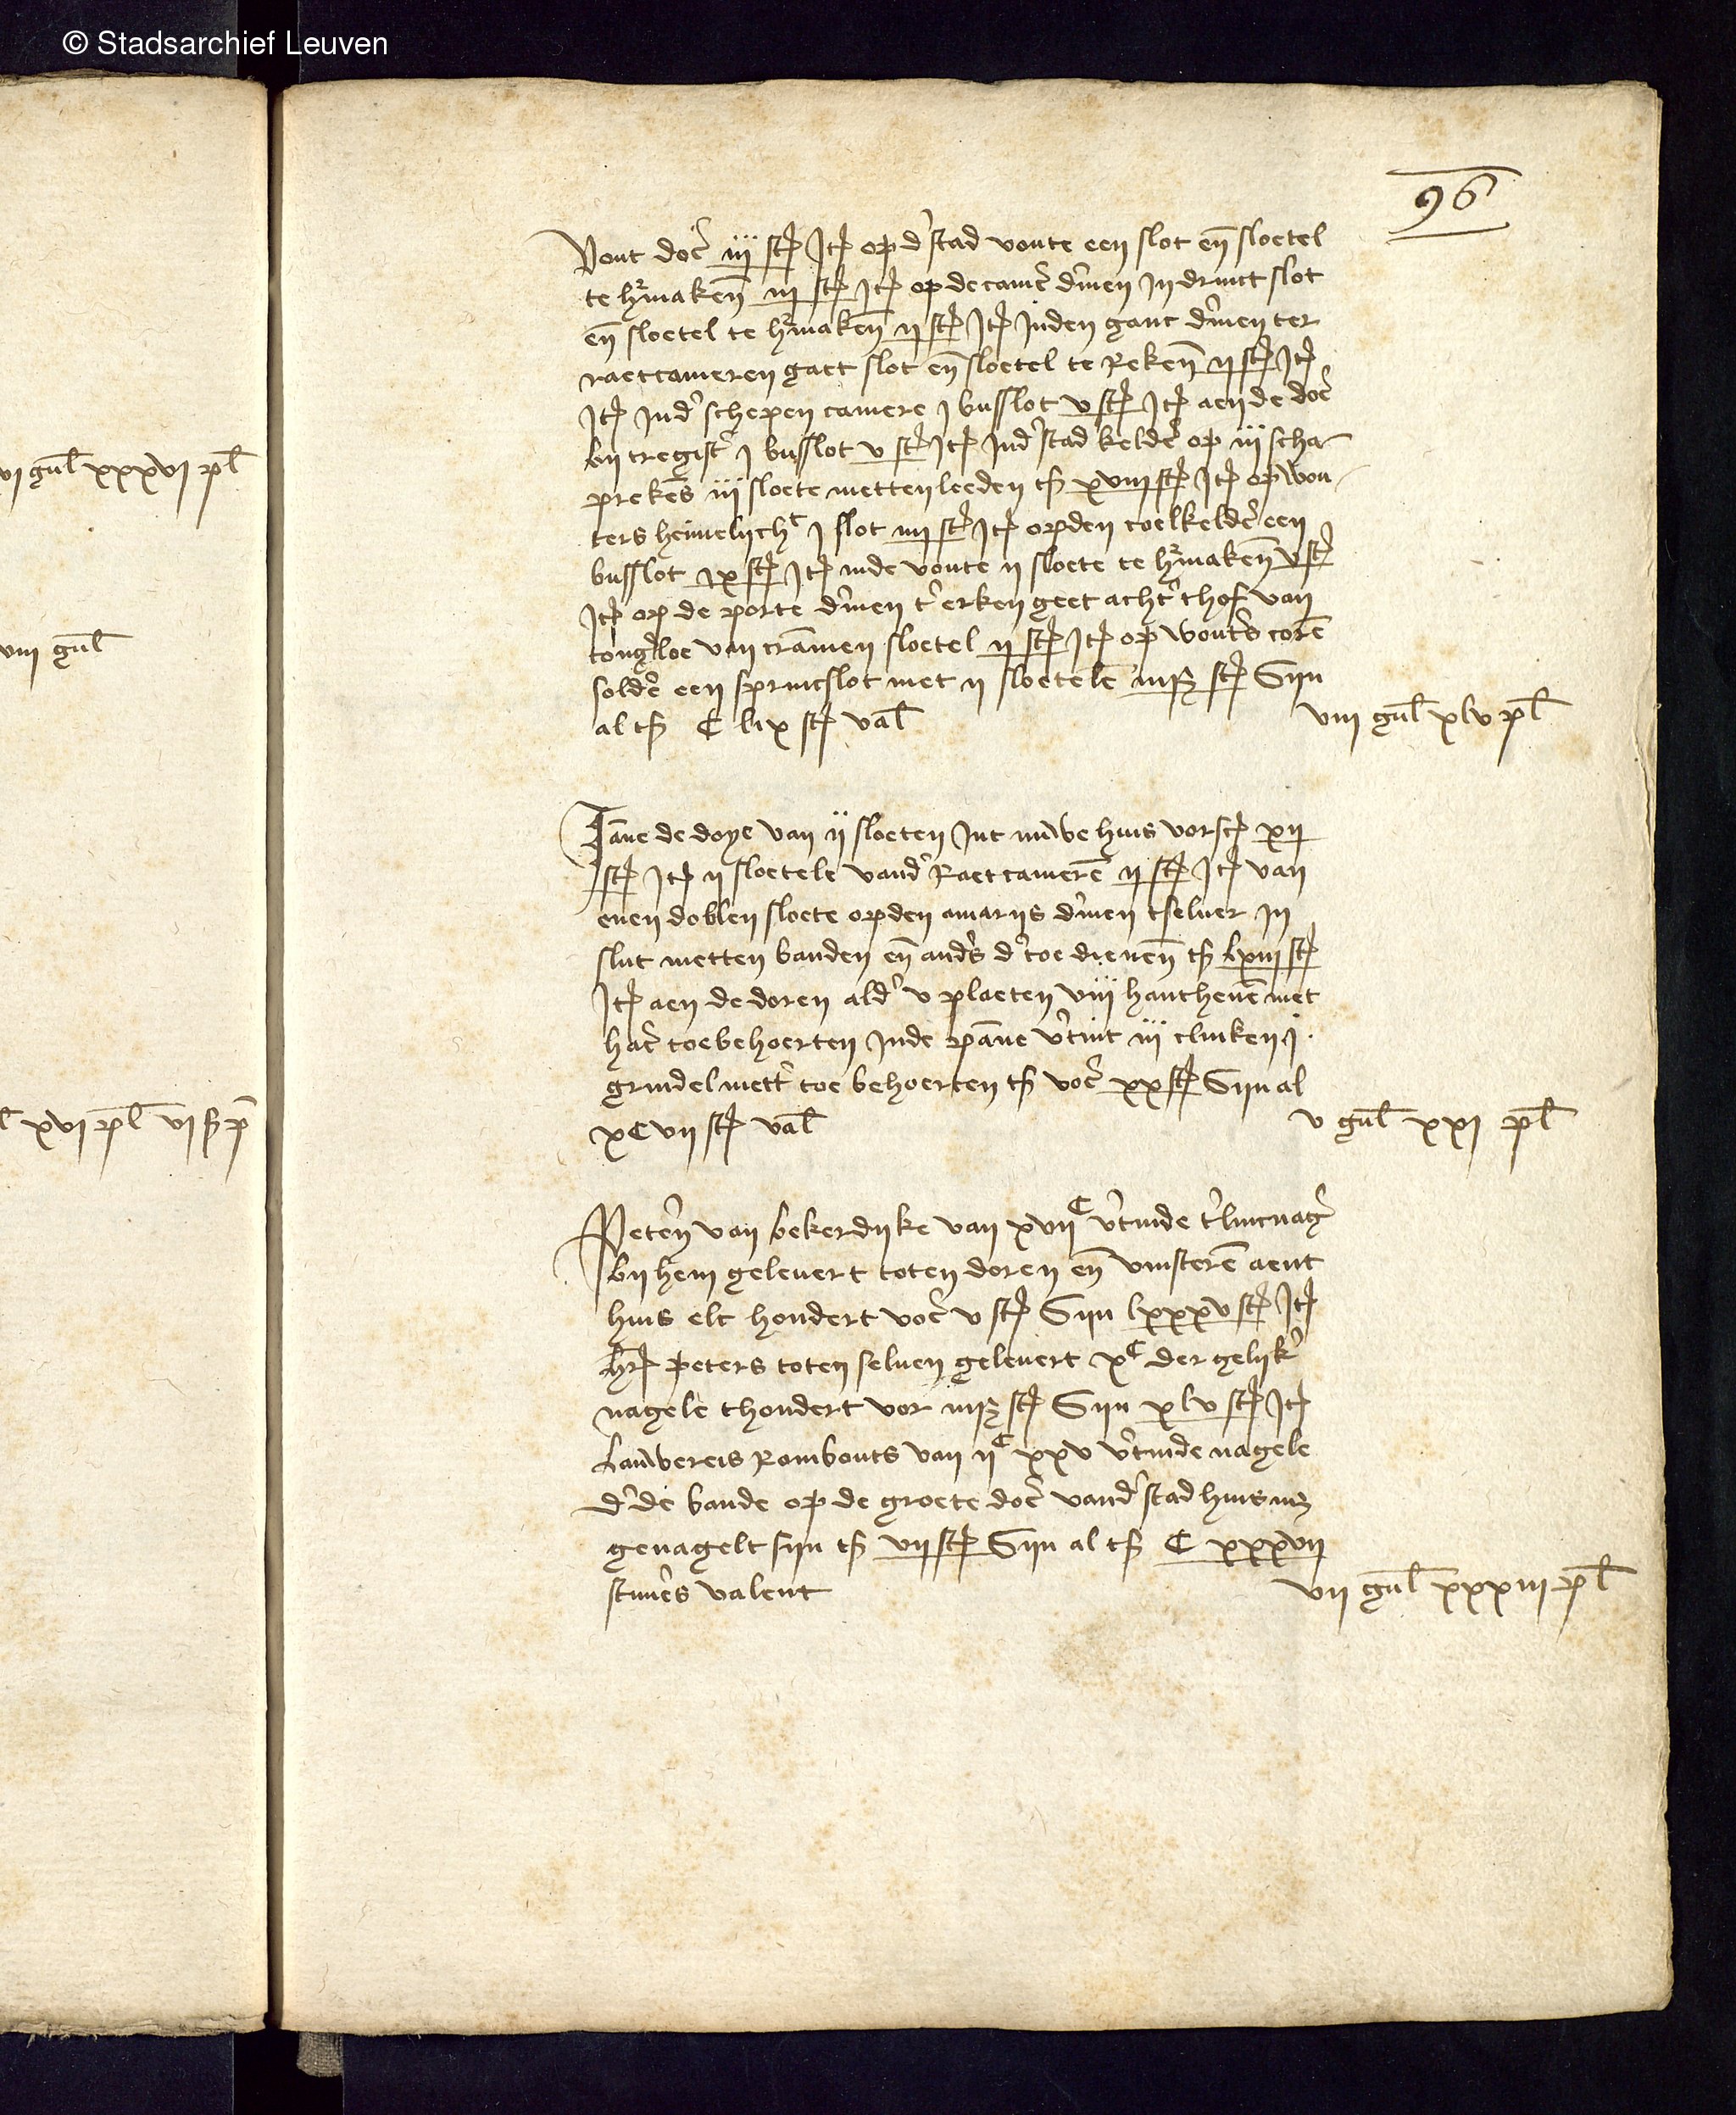 © Stadsarchief Leuven
96
vont doer iij st Itē op dstad voute een slot eñ sloetel
te hmakeñ iij st Itē op de camer dmen in drinct slot
eñ sloetel te hmakeñ ij st Itē inden ganc dmen ter
raetcameren gaet slot eñ sloetel te Rekeñ ij st Itē
Itē Ind schepen camere j busslot v st Itē aen de doer
bij tregistr j busslot v st Itē Ind stad kelder op iij scha
prekēs iij sloete metten leeden tś xviij st Itē op wou
ters heimelijcht j slot iiij st Itē opden coelkelder een
busslot ix st Itē inde voute ij sloete te hmakeñ v st
Itē op de porte dmen t erken geet acht thof van
tongloe van crāmen sloetel ij st Itē op wouters corē
solder een sprincslot met ij sloetelē iiijß st Sijn
al tś C lix st val
viij gul xlv pl
Jāne de doye van ij sloeten Int nuwe huis vorsc xij
st Itē ij sloetele vand Raetcamerē ij st Itē van
enen doblen sloete opden amarijs dmen tseluer in
slut metten banden eñ anders d toe dieneñ tś lxiij st
Itē aen de doren ald v plaeten viij hantheuē met
haer toebehoerten Inde pāne vtint iij clinken j
grindel mett toe behoerten tś voer xx st Sijn al
xcvij st val
v gul xxj pl
Peteren van bekerdijke van xvijC vtinde tlincnagle
bij hem geleuert toten doren eñ vinsterē aent
huis elc hondert voer v st Sijn lxxxv st Itē
hr peters toten seluen geleuert xC der gelijke
nagele thondert vor iiijß st Sijn xlv st Itē
Lauwereis Rombouts van ijC xxv vtinde nagele
d de bande op de groete doer vand stad huis
genagelt sijn tś vij st Sijn al tś C xxxvij
stuuers valent
vij gul xxxiij pl
vj gul xxxvj pl
viij gul
xvj pl vj